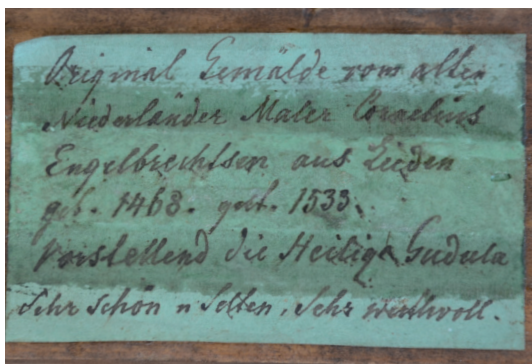 Original Gemälde vom alten
Niederländer Maler Cornelius
Engelbrechtsen aus Leiden
geb. 1468. gest. 1533.
Vorstellend die Heilige Gudula
Sehr schön u Selten, Sehr werthvoll.